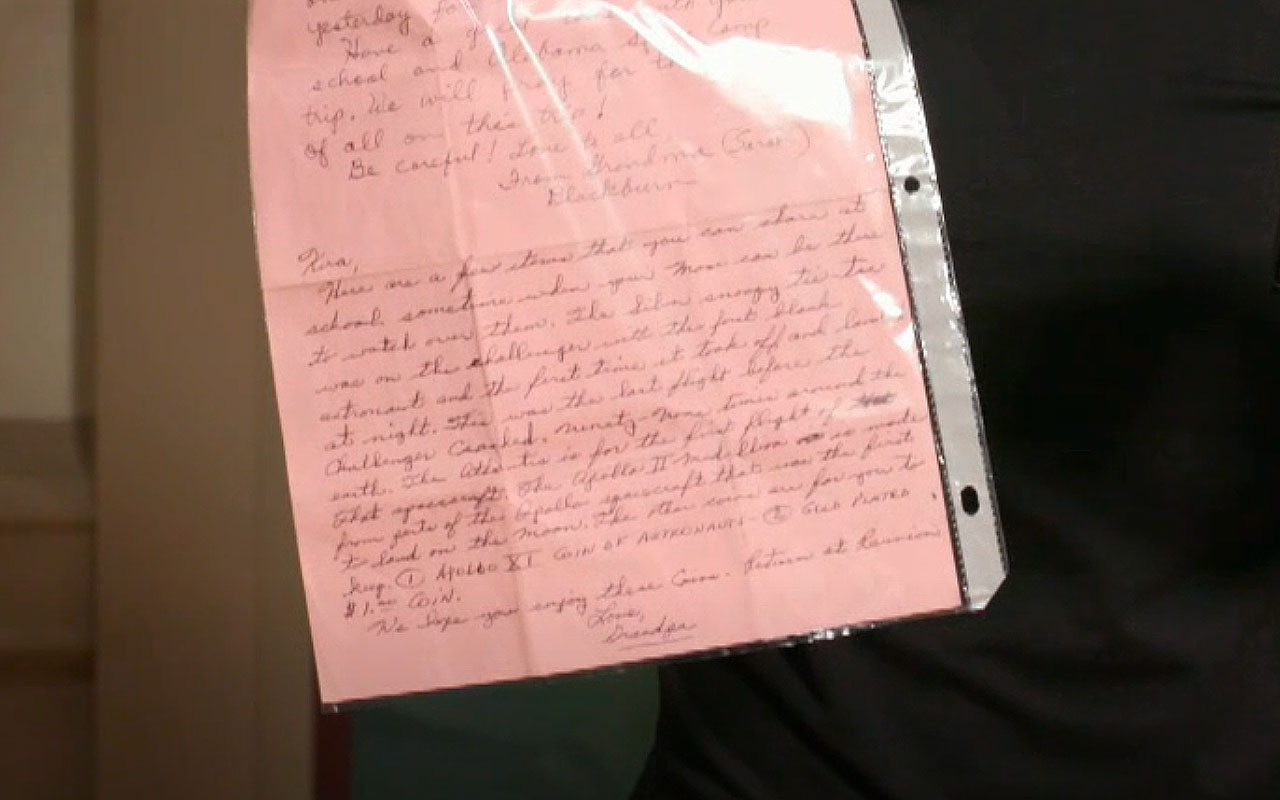 yesterday
Have a with you
school and Alabama Camp
trip. We will for
of all on this trip!
Be careful! Love to all
From Grandma
Blackburn
Kira,
Here are a few items that you can share at
school sometime when your Mom can be there
to watch over them. The Silver snoopy tie-tac
was on the challenger with the first black
astronaut and the first time it took off and
at night. This was the last flight before the
Challenger Crashed. Ninety-None times around the
earth. The Atlantis is for the first flight of
that spacecraft. The Apollo II Medallion is made
from parts of the Apollo spacecraft that was the first
to land on the Moon. The other coins are for you to
keep. ① APOLLO XI COIN OF ASTRONAUTS - ② GOLD PLATED
$1.00 COIN.
We hope you enjoy these Coins. Return at Reunion
Love,
Grandpa